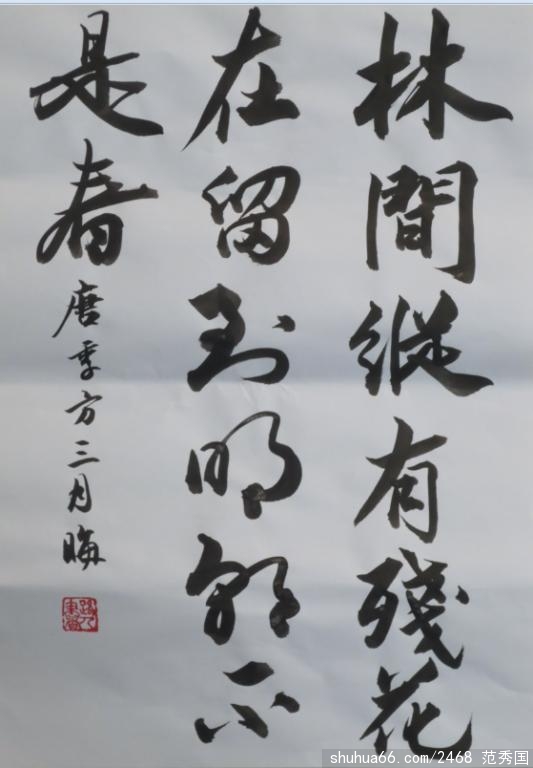 林間縱有殘花
在留到明朝不
是春
唐李方三月晦
shuhua66.com/2468 范秀国